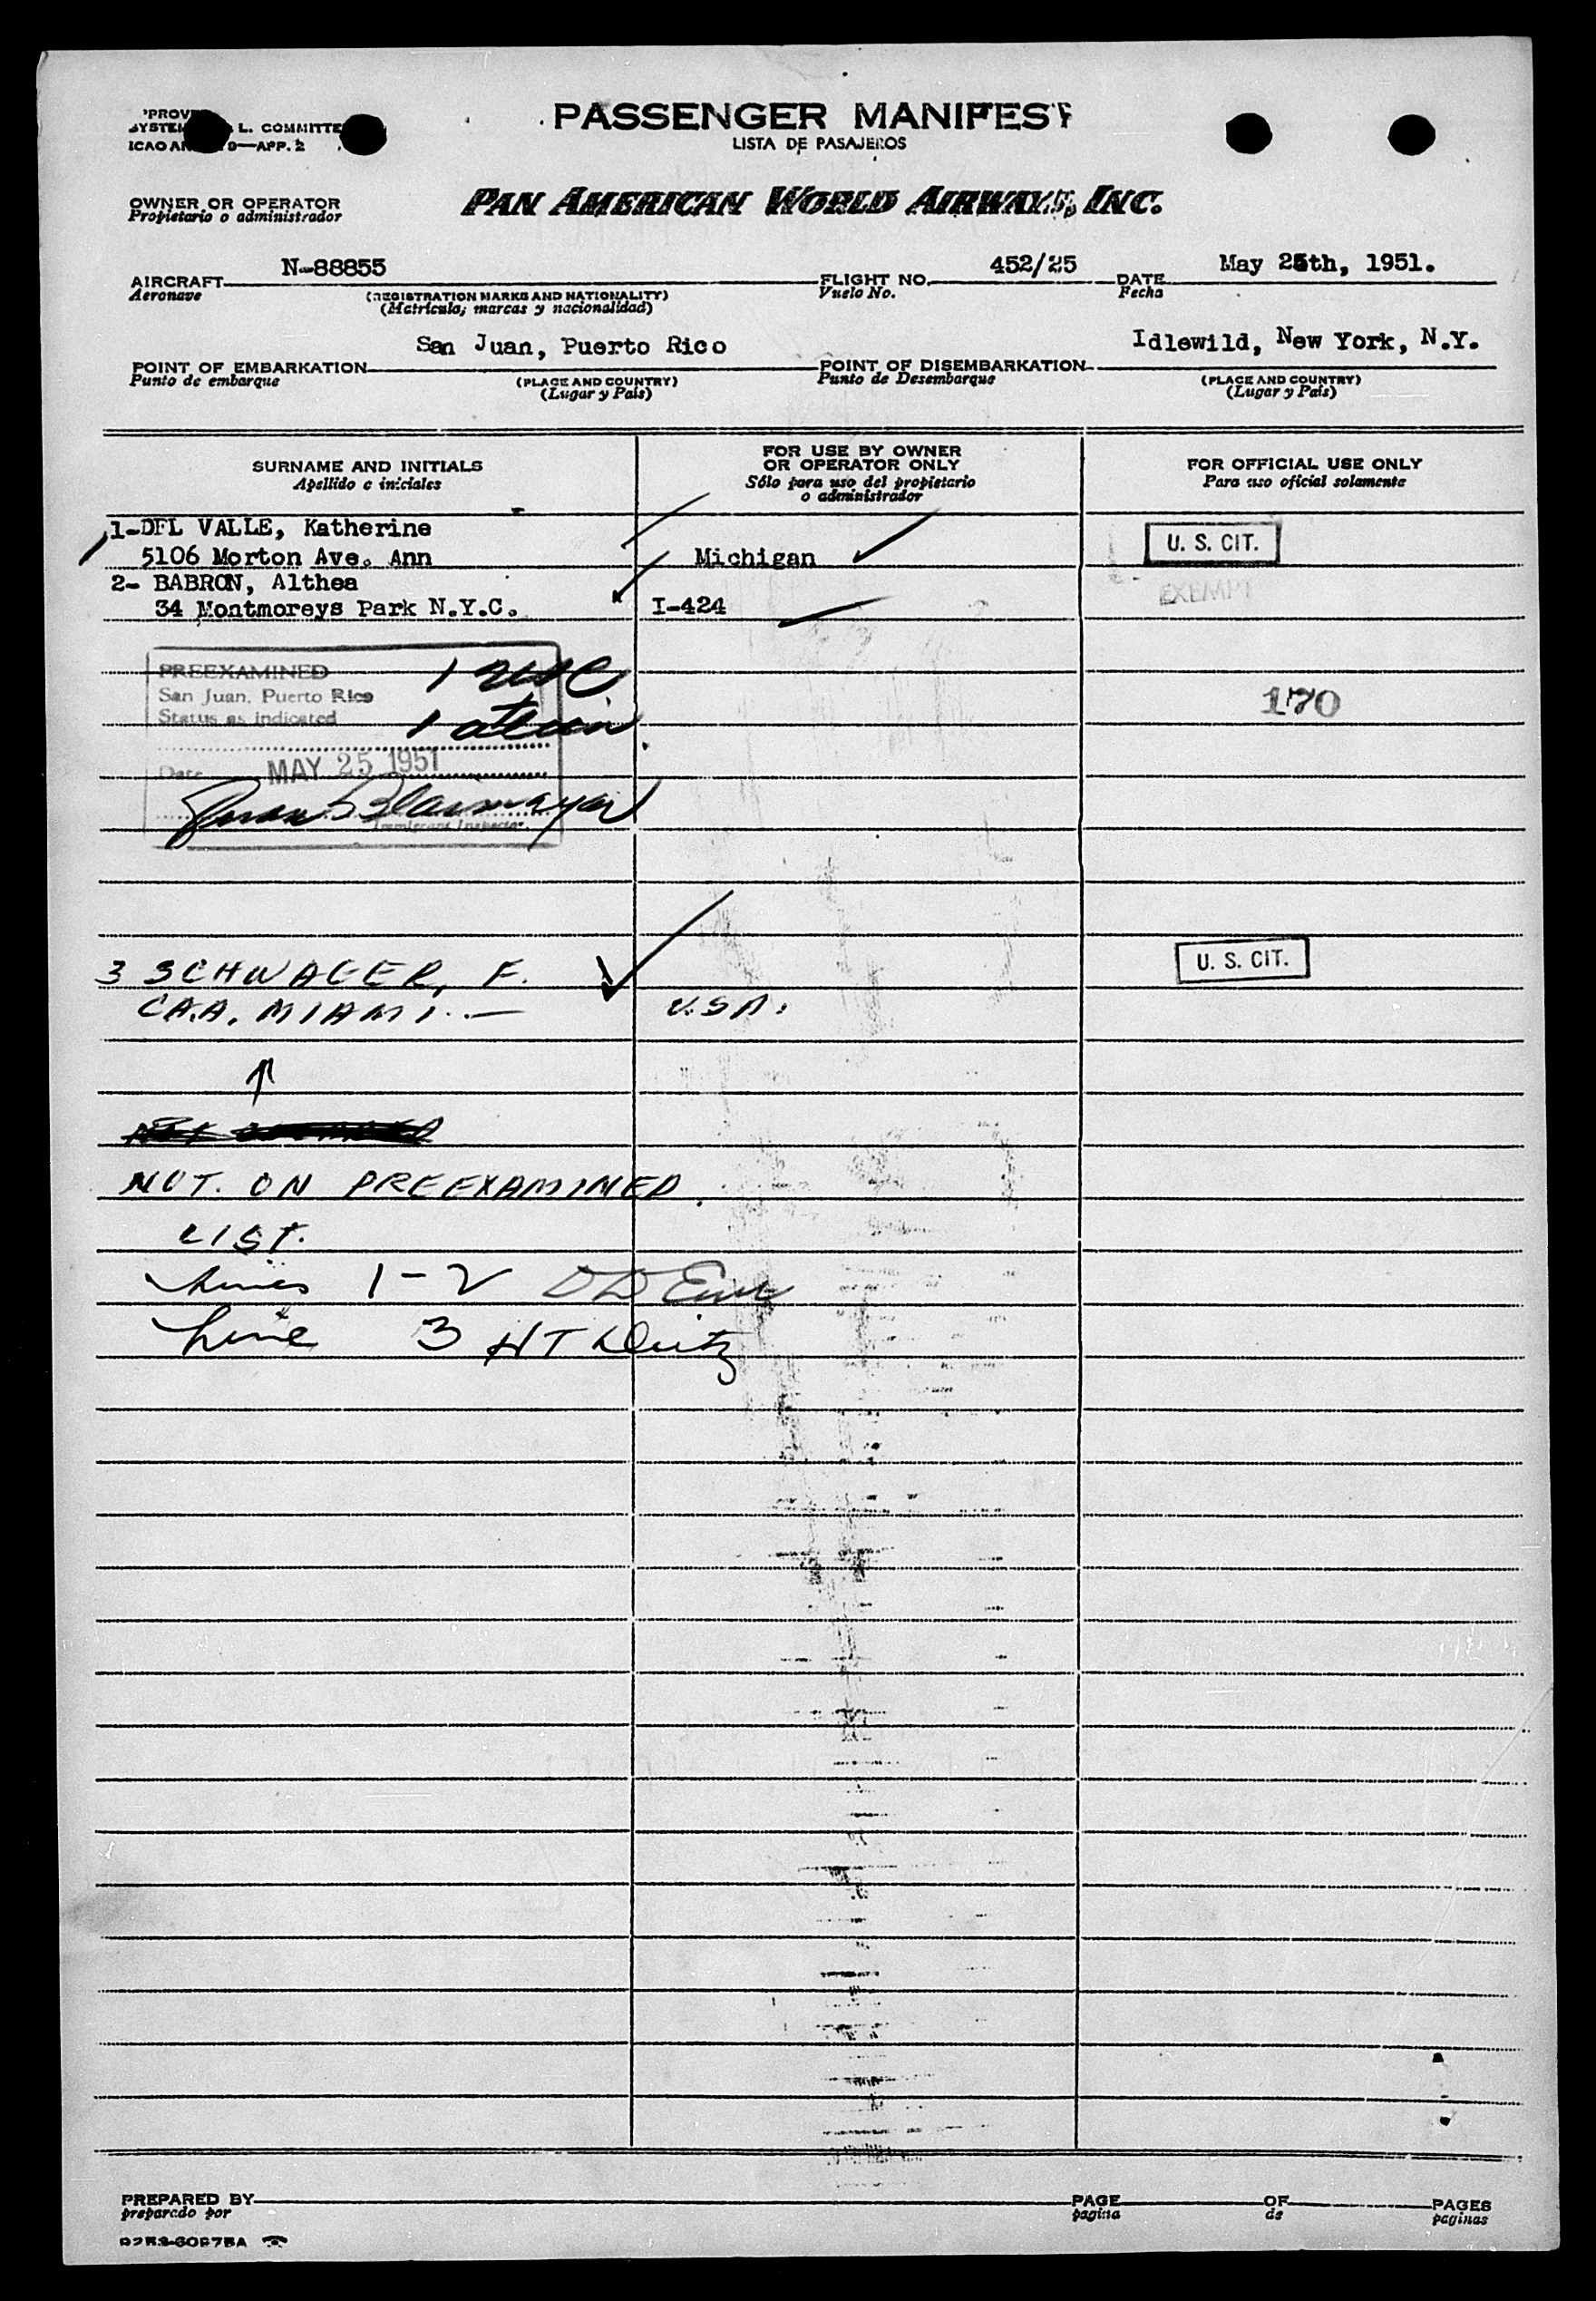 PASSENGER MANIFEST
LISTA DE PASAJEROS
L. COMMITTE
APP. 2
OWNER OR OPERATOR
Propietario o administrador
PAN AMERICAN WORLD AIRWAYS, INC.
AIRCRAFT N-88855 FLIGHT NO. 452/25 DATE May 25th, 1951.
Aeronave (REGISTRATION MARKS AND NATIONALITY) Vuelo No. Fecha
(Matrícula, marcas y nacionalidad)
POINT OF EMBARKATION San Juan, Puerto Rico POINT OF DISEMBARKATION Idlewild, New York, N.Y.
Punto de embarque (PLACE AND COUNTRY) Punto de Desembarque (PLACE AND COUNTRY)
(Lugar y País) (Lugar y País)
SURNAME AND INITIALS
Apellido e iniciales
FOR USE BY OWNER
OR OPERATOR ONLY
Sólo para uso del propietario
o administrador
FOR OFFICIAL USE ONLY
Para uso oficial solamente
1-DEL VALLE, Katherine
5106 Morton Ave. Ann Michigan U. S. CIT.
2- BABRON, Althea
34 Montmoreys Park N.Y.C. I-424 EXEMPT
PREEXAMINED 1 USC
San Juan, Puerto Rico
Status as indicated 1 alien
170
Date MAY 25 1951
Immigrant Inspector
3 SCHWAGER, F. U. S. CIT.
C.A.A. MIAMI.— U.S.A.
↑
NOT. ON PREEXAMINED
LIST.
Lines 1-2
Line 3 HT
PREPARED BY PAGE OF PAGES
preparado por pagina de paginas